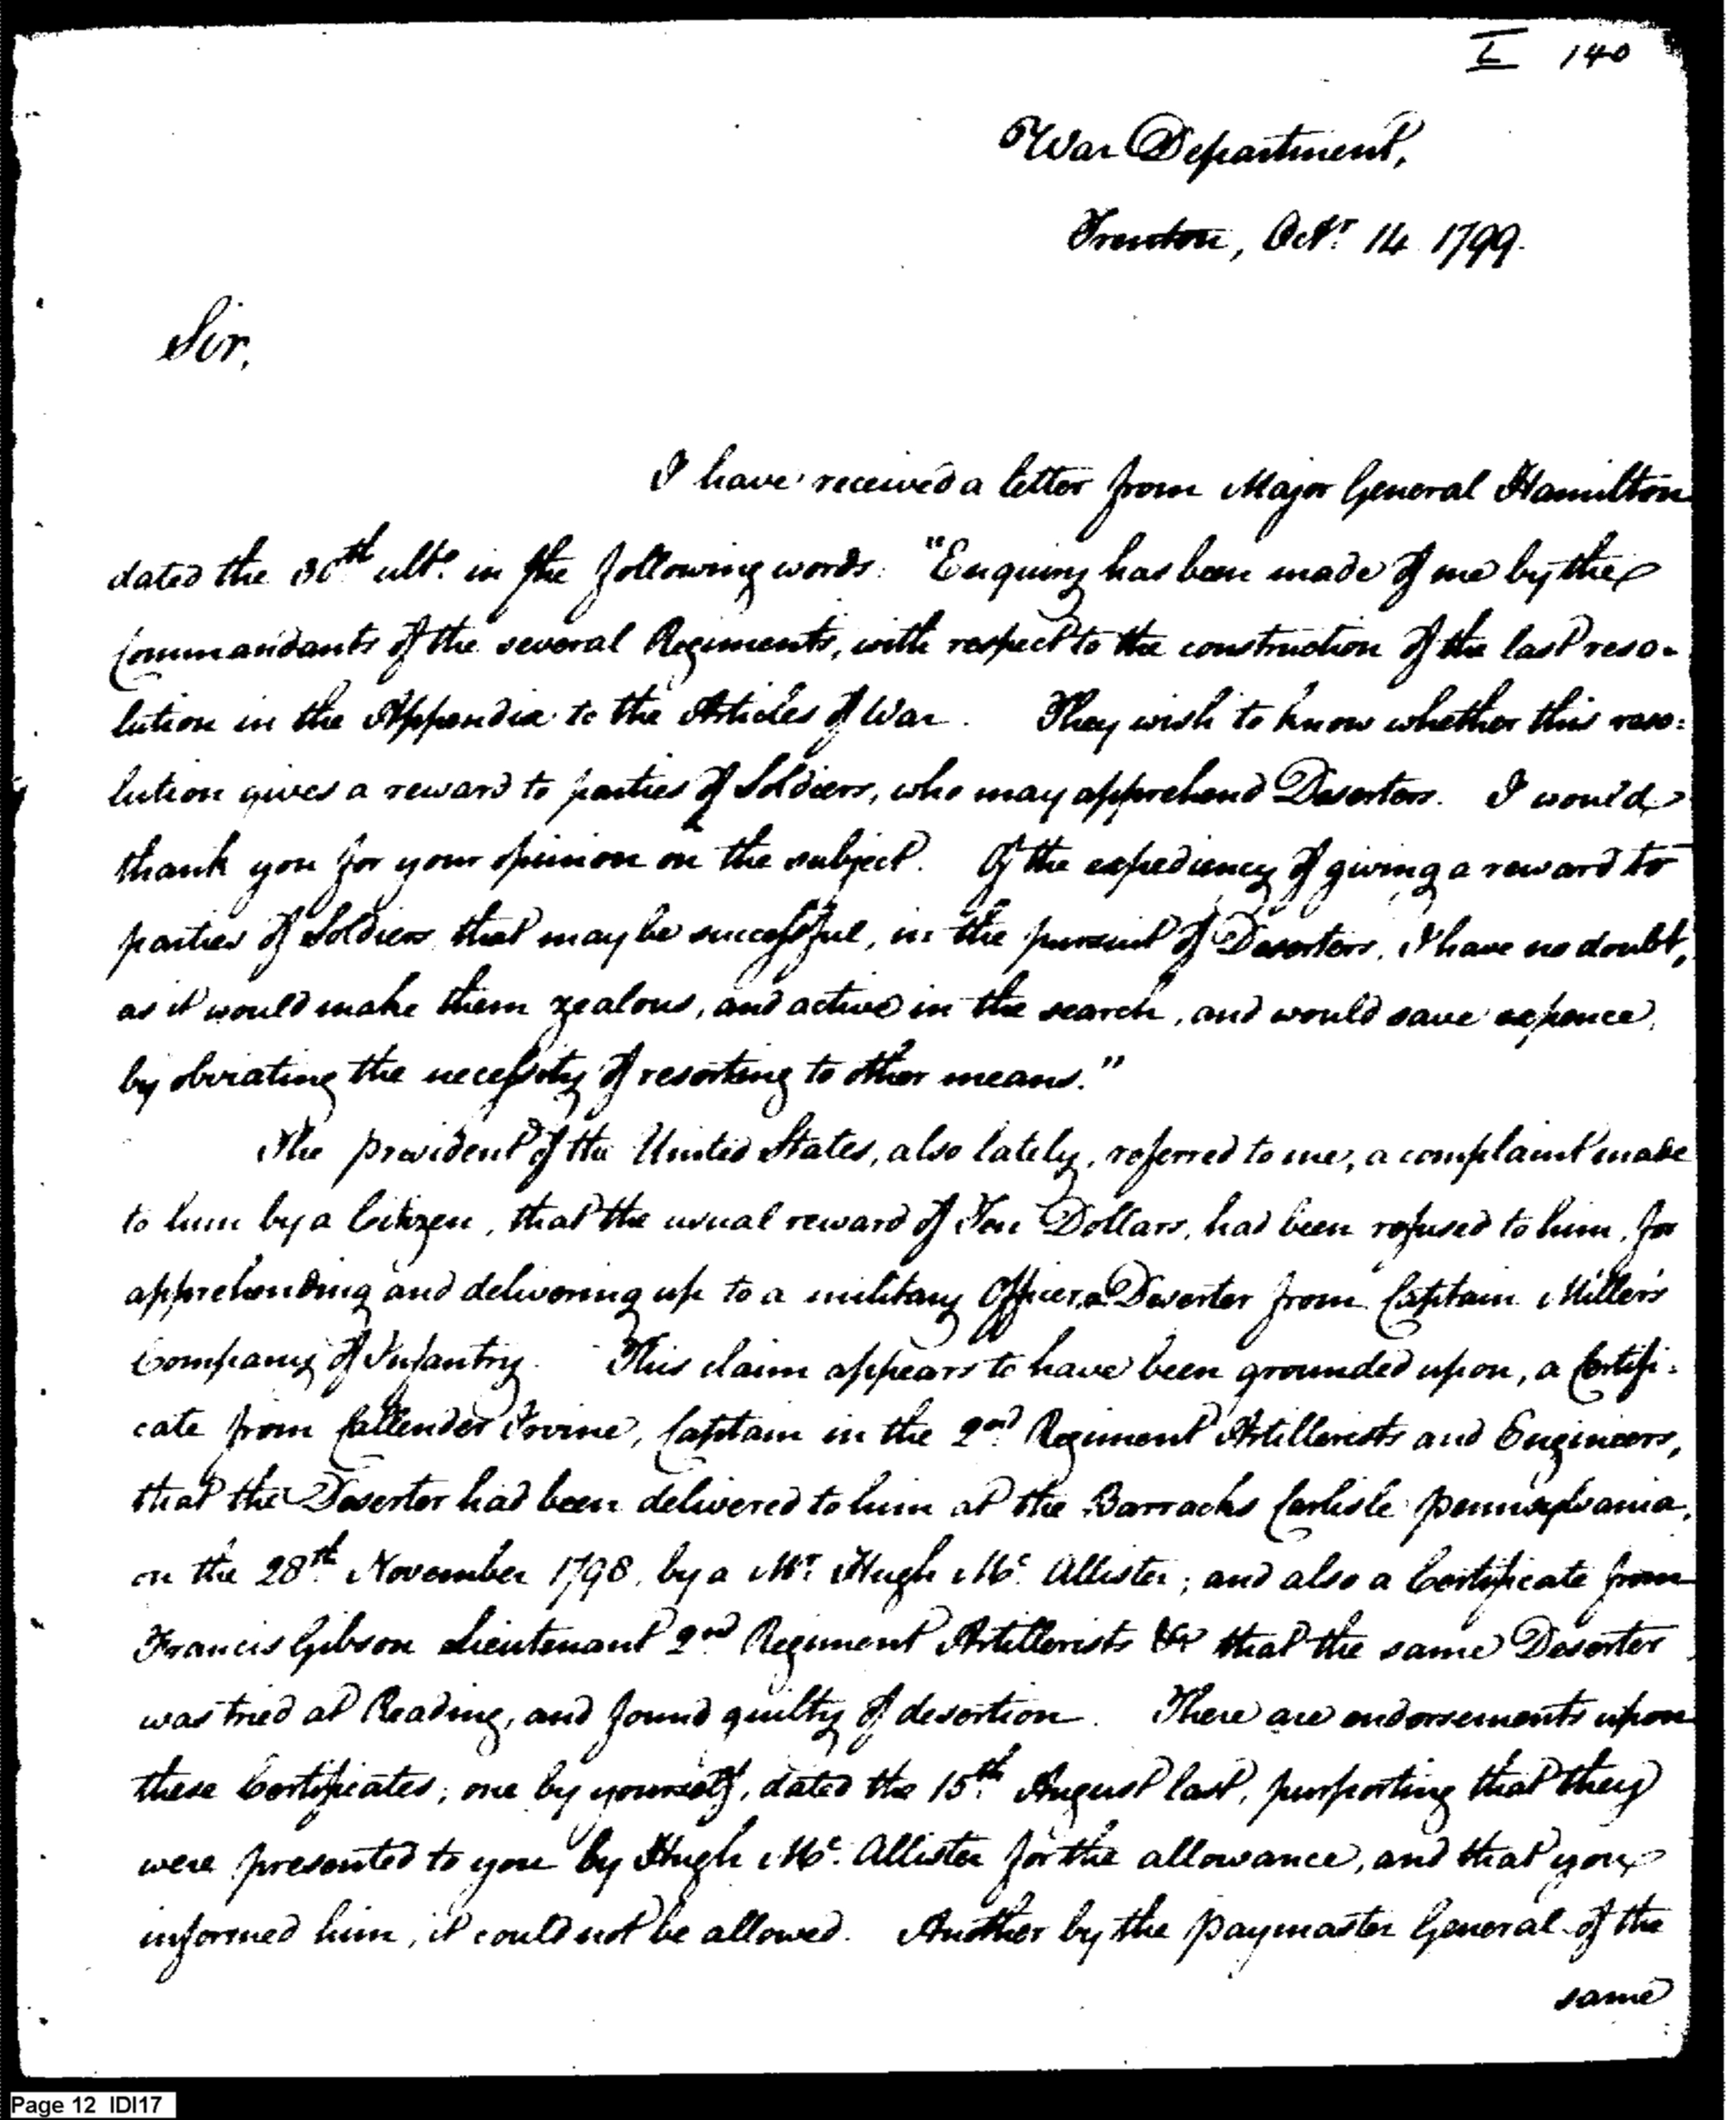 I 140
War Department,
Trenton, Octr. 14 1799.
Sir,
I have received a letter from Major General Hamilton
dated the 30th ulto. in the following words: "Enquiry has been made of me by the
Commandants of the several Regiments, with respect to the construction of the last reso-
lution in the Appendix to the Articles of War. They wish to know whether this reso-
lution gives a reward to parties of Soldiers, who may apprehend Deserters. I would
thank you for your opinion on the subject. Of the expediency of giving a reward to
parties of Soldiers that may be successful, in the pursuit of Deserters, I have no doubt,
as it would make them zealous, and active in the search, and would save expence,
by obviating the necessity of resorting to other means."
The President of the United States, also lately, referred to me, a complaint made
to him by a Citizen, that the usual reward of Ten Dollars, had been refused to him, for
apprehending and delivering up to a military Officer, a Deserter from Captain Miller's
Company of Infantry. This claim appears to have been grounded upon, a Certifi-
cate from Callender Irvine, Captain in the 2nd Regiment Artillerists and Engineers,
that the Deserter had been delivered to him at the Barracks Carlisle Pennsylvania,
on the 28th November 1798, by a Mr. Hugh Mc. Allister; and also a Certificate from
Francis Gibson Lieutenant 2nd Regiment Artillerists &c that the same Deserter
was tried at Reading, and found guilty of desertion. There are endorsements upon
these Certificates; one by yourself, dated the 15th August last, purporting that they
were presented to you by Hugh Mc. Allister for the allowance, and that you
informed him, it could not be allowed. Another by the Paymaster General of the
same
Page 12 IDI17